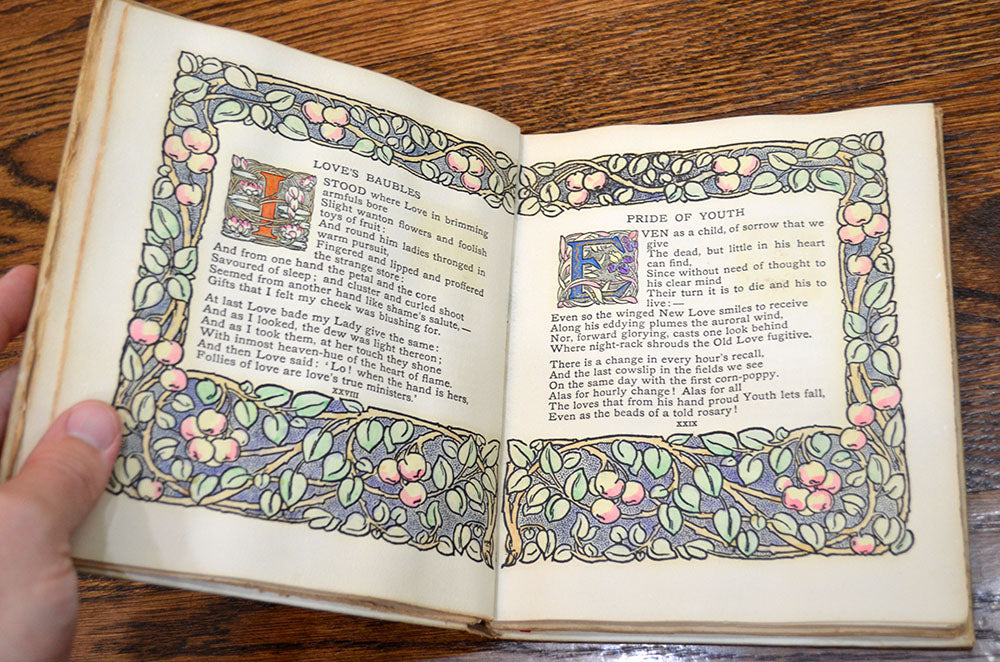 LOVE'S BAUBLES
I STOOD where Love in brimming
armfuls bore
Slight wanton flowers and foolish
toys of fruit:
And round him ladies thronged in
warm pursuit,
Fingered and lipped and proffered
the strange store:
And from one hand the petal and the core
Savoured of sleep; and cluster and curled shoot
Seemed from another hand like shame's salute,—
Gifts that I felt my cheek was blushing for.
At last Love bade my Lady give the same:
And as I looked, the dew was light thereon;
And as I took them, at her touch they shone
With inmost heaven-hue of the heart of flame.
And then Love said: 'Lo! when the hand is hers,
Follies of love are love's true ministers.'
XXVIII
PRIDE OF YOUTH
EVEN as a child, of sorrow that we
give
The dead, but little in his heart
can find,
Since without need of thought to
his clear mind
Their turn it is to die and his to
live:—
Even so the winged New Love smiles to receive
Along his eddying plumes the auroral wind,
Nor, forward glorying, casts one look behind
Where night-rack shrouds the Old Love fugitive.
There is a change in every hour's recall,
And the last cowslip in the fields we see
On the same day with the first corn-poppy.
Alas for hourly change! Alas for all
The loves that from his hand proud Youth lets fall,
Even as the beads of a told rosary!
XXIX